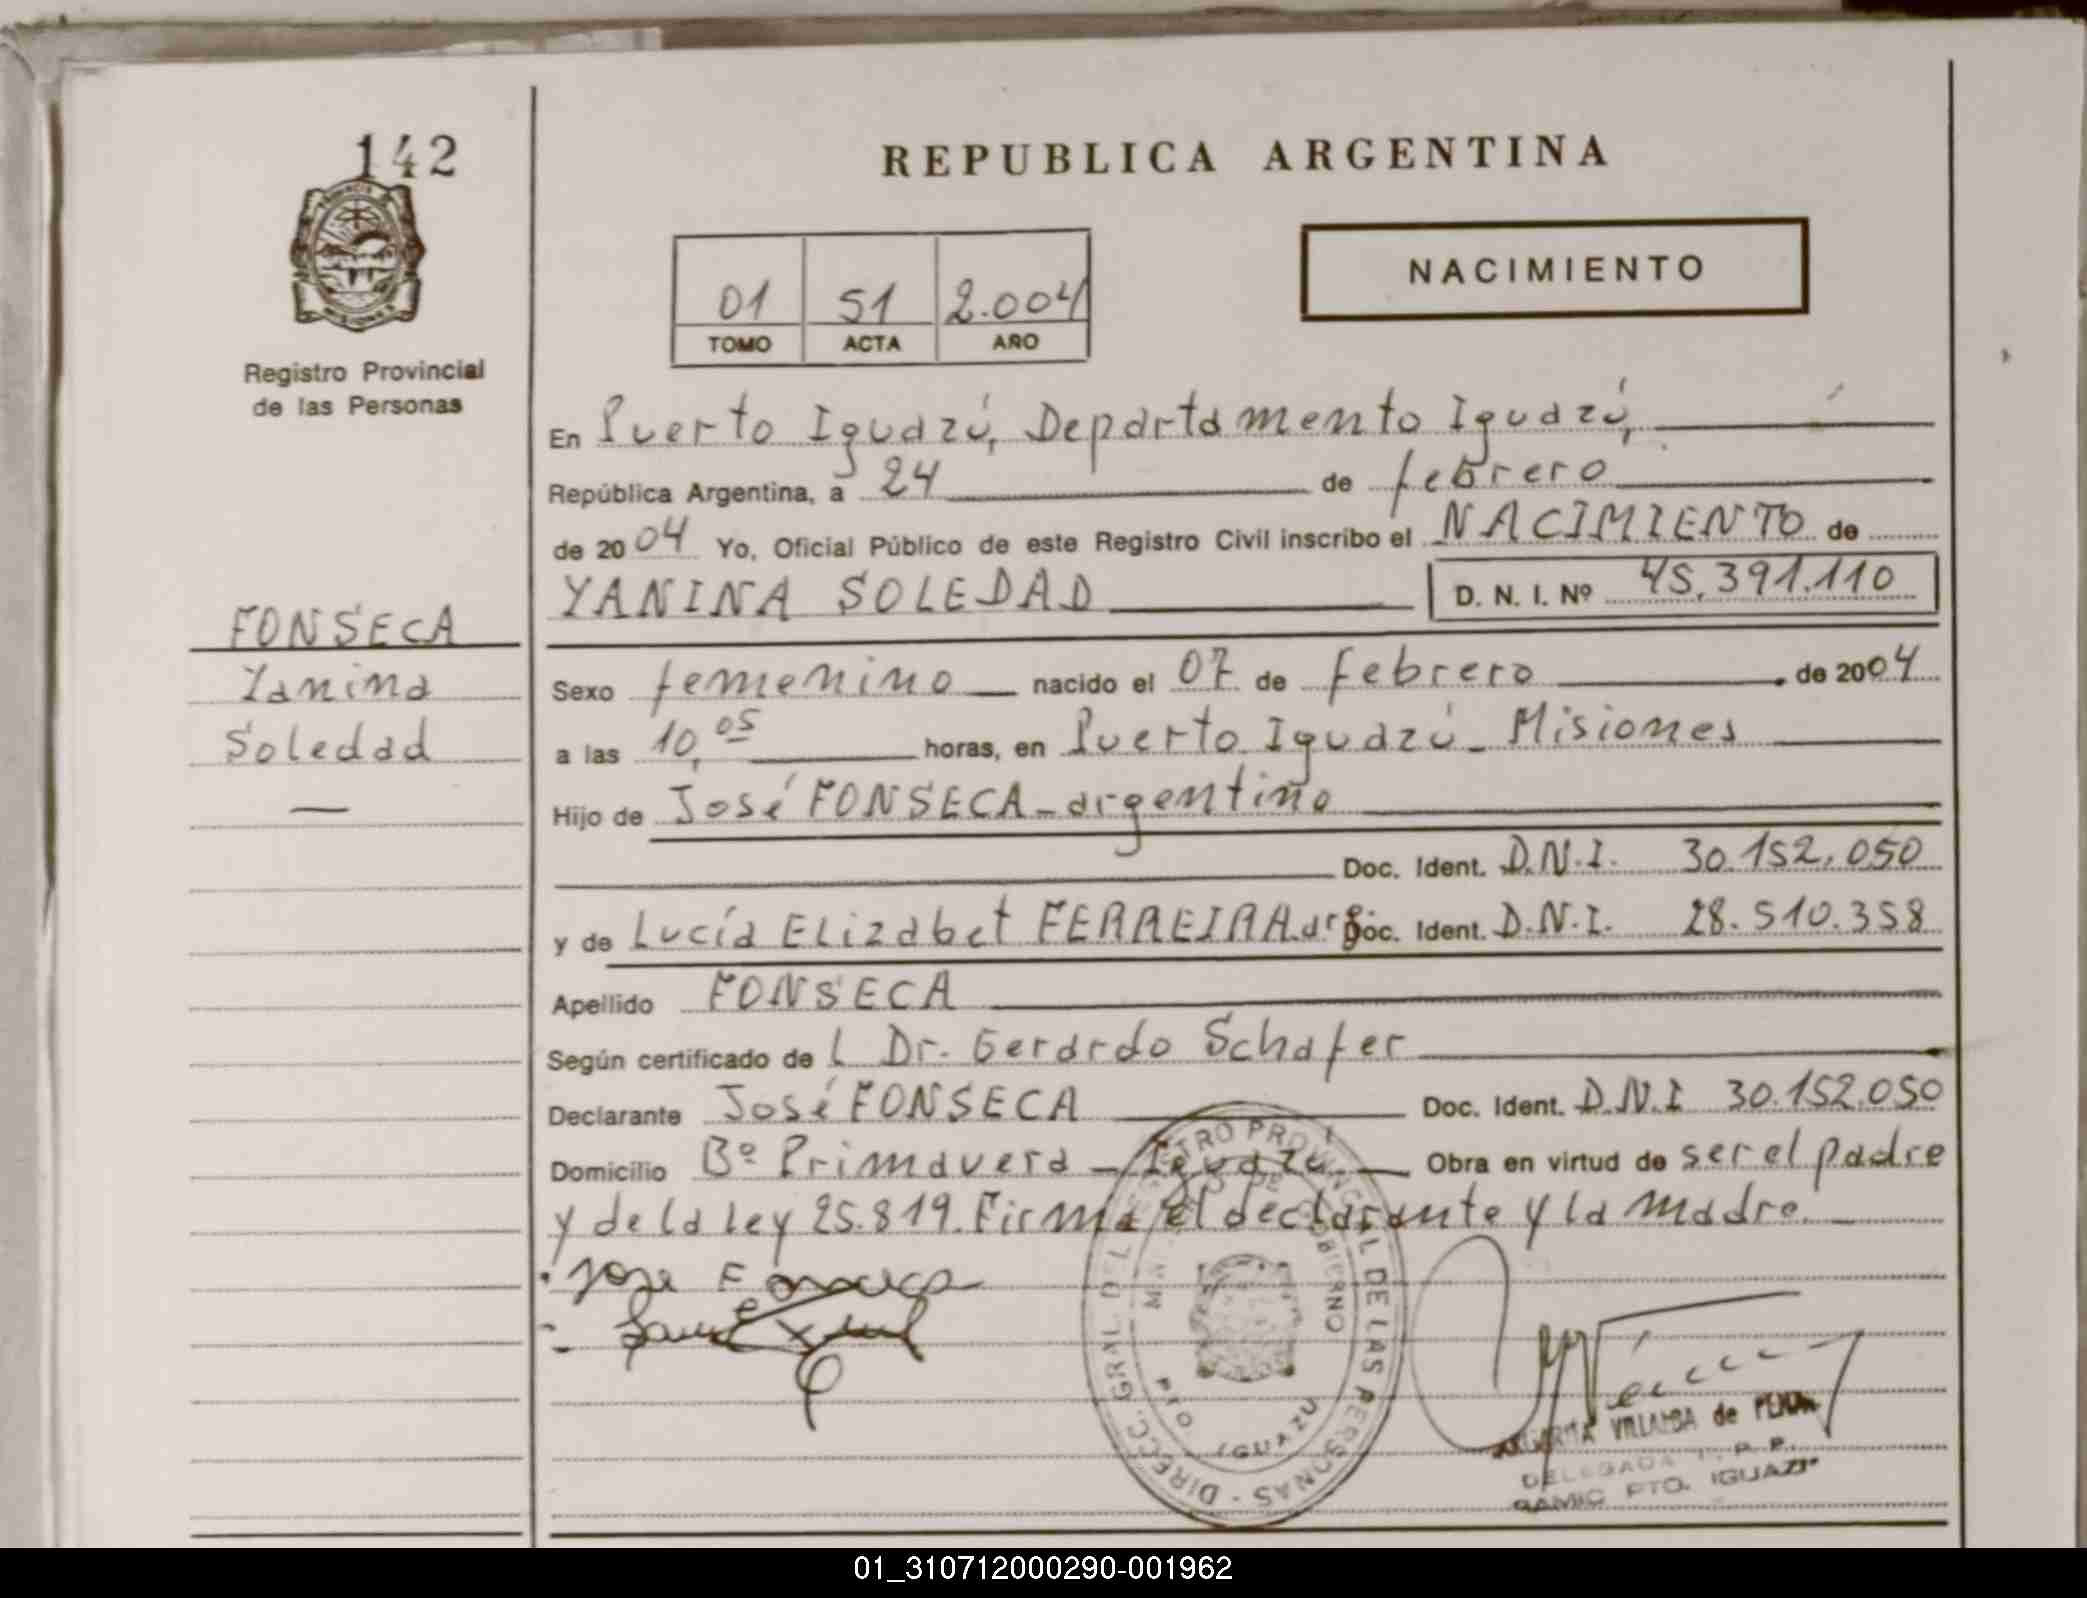 142
REPUBLICA ARGENTINA
NACIMIENTO
01 51 2.004
TOMO ACTA AÑO
Registro Provincial
de las Personas
En Puerto Iguazú, Departamento Iguazú,
República Argentina, a 24 de febrero
de 2004 Yo, Oficial Público de este Registro Civil inscribo el NACIMIENTO de
YANINA SOLEDAD D. N. I. Nº 45.391.110
FONSECA
Yanina
Soledad
Sexo femenino nacido el 07 de febrero de 2004
a las 10,05 horas, en Puerto Iguazú - Misiones
Hijo de José FONSECA - argentino
Doc. Ident. D.N.I. 30.152.050
y de Lucía Elizabet FERREIRA. arg Doc. Ident. D.N.I. 28.510.358
Apellido FONSECA
Según certificado de l Dr. Gerardo Schafer
Declarante José FONSECA Doc. Ident. D.N.I 30.152.050
Domicilio Bº Primavera - Iguazú. Obra en virtud de ser el padre
y de la Ley 25.819. Firma el declarante y la madre.
Jose Fonseca
DIRECC. GRAL. DEL REGISTRO PROVINCIAL DE LAS PERSONAS
DE GOBIERNO
PTO IGUAZU
VILLALBA de
DELEGADA
PTO. IGUAZU
01_310712000290-001962